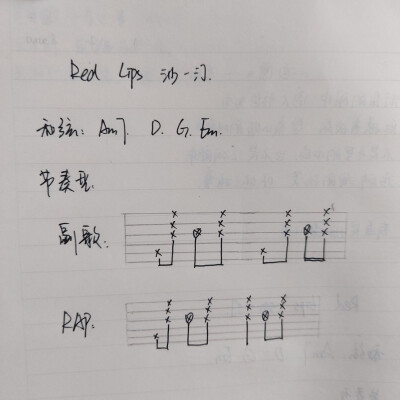 Red Lips 沙一汀.
和弦: Am7. D. G. Em.
节奏型:
副歌:
RAP: